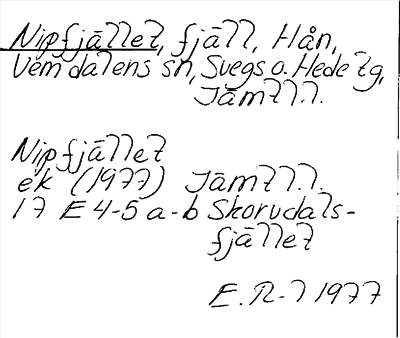 Nipfjället, fjäll, Hån,
Vemdalens sn, Svegs o. Hede tg,
Jämtl.l.
Nipfjället
ek (1977) Jämtl.l.
17 E 4-5 a-b Skorvdals-
fjället
E.R-l 1977